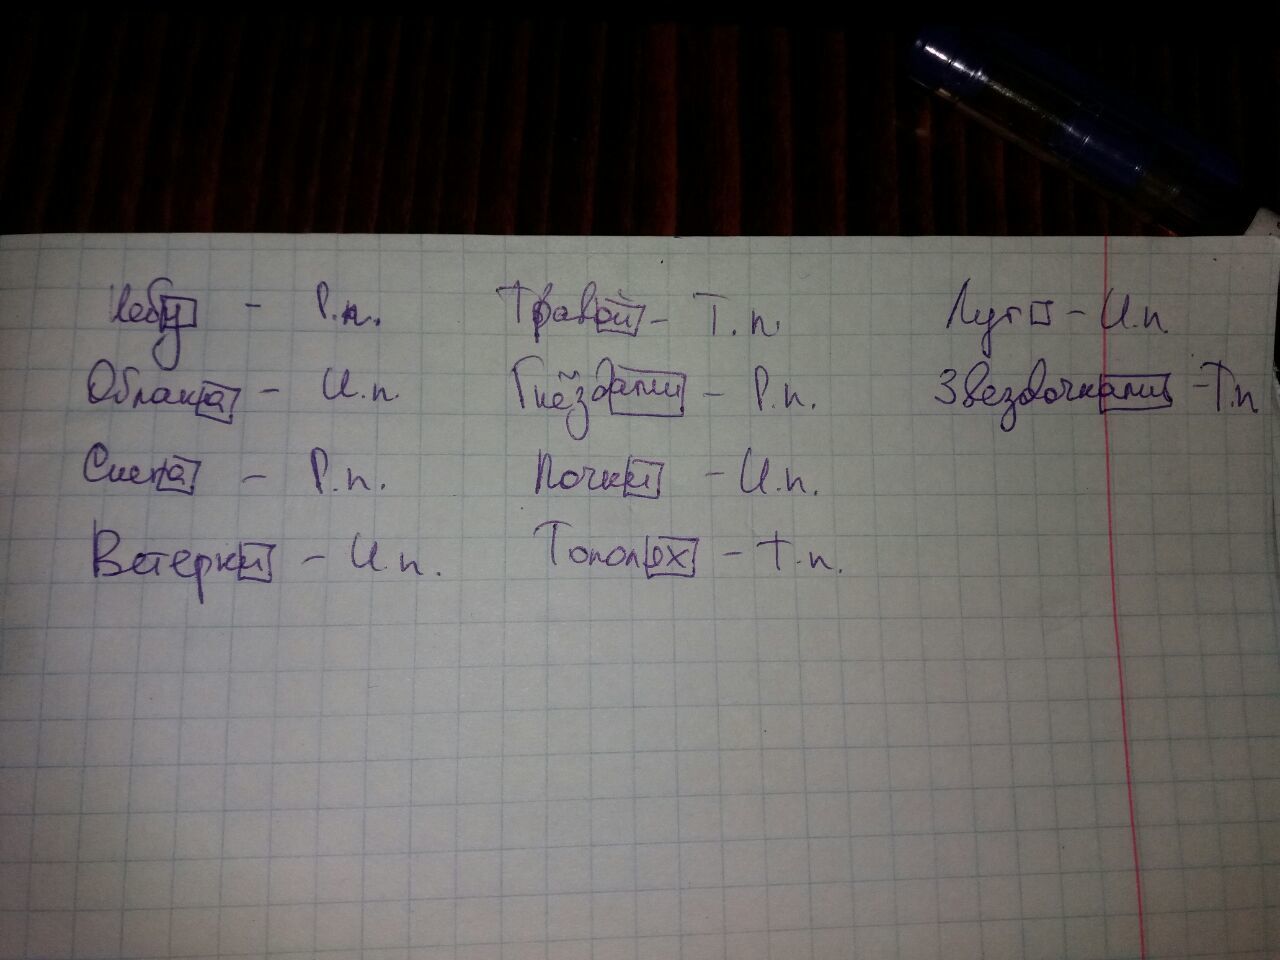 Небу - Р.п.
Облака - И.п.
Снега - Р.п.
Ветерки - И.п.
Травой - Т.п.
Гнёздами - Р.п.
Почки - И.п.
Тополях - Т.п.
- И.п.
Звездочками - Т.п